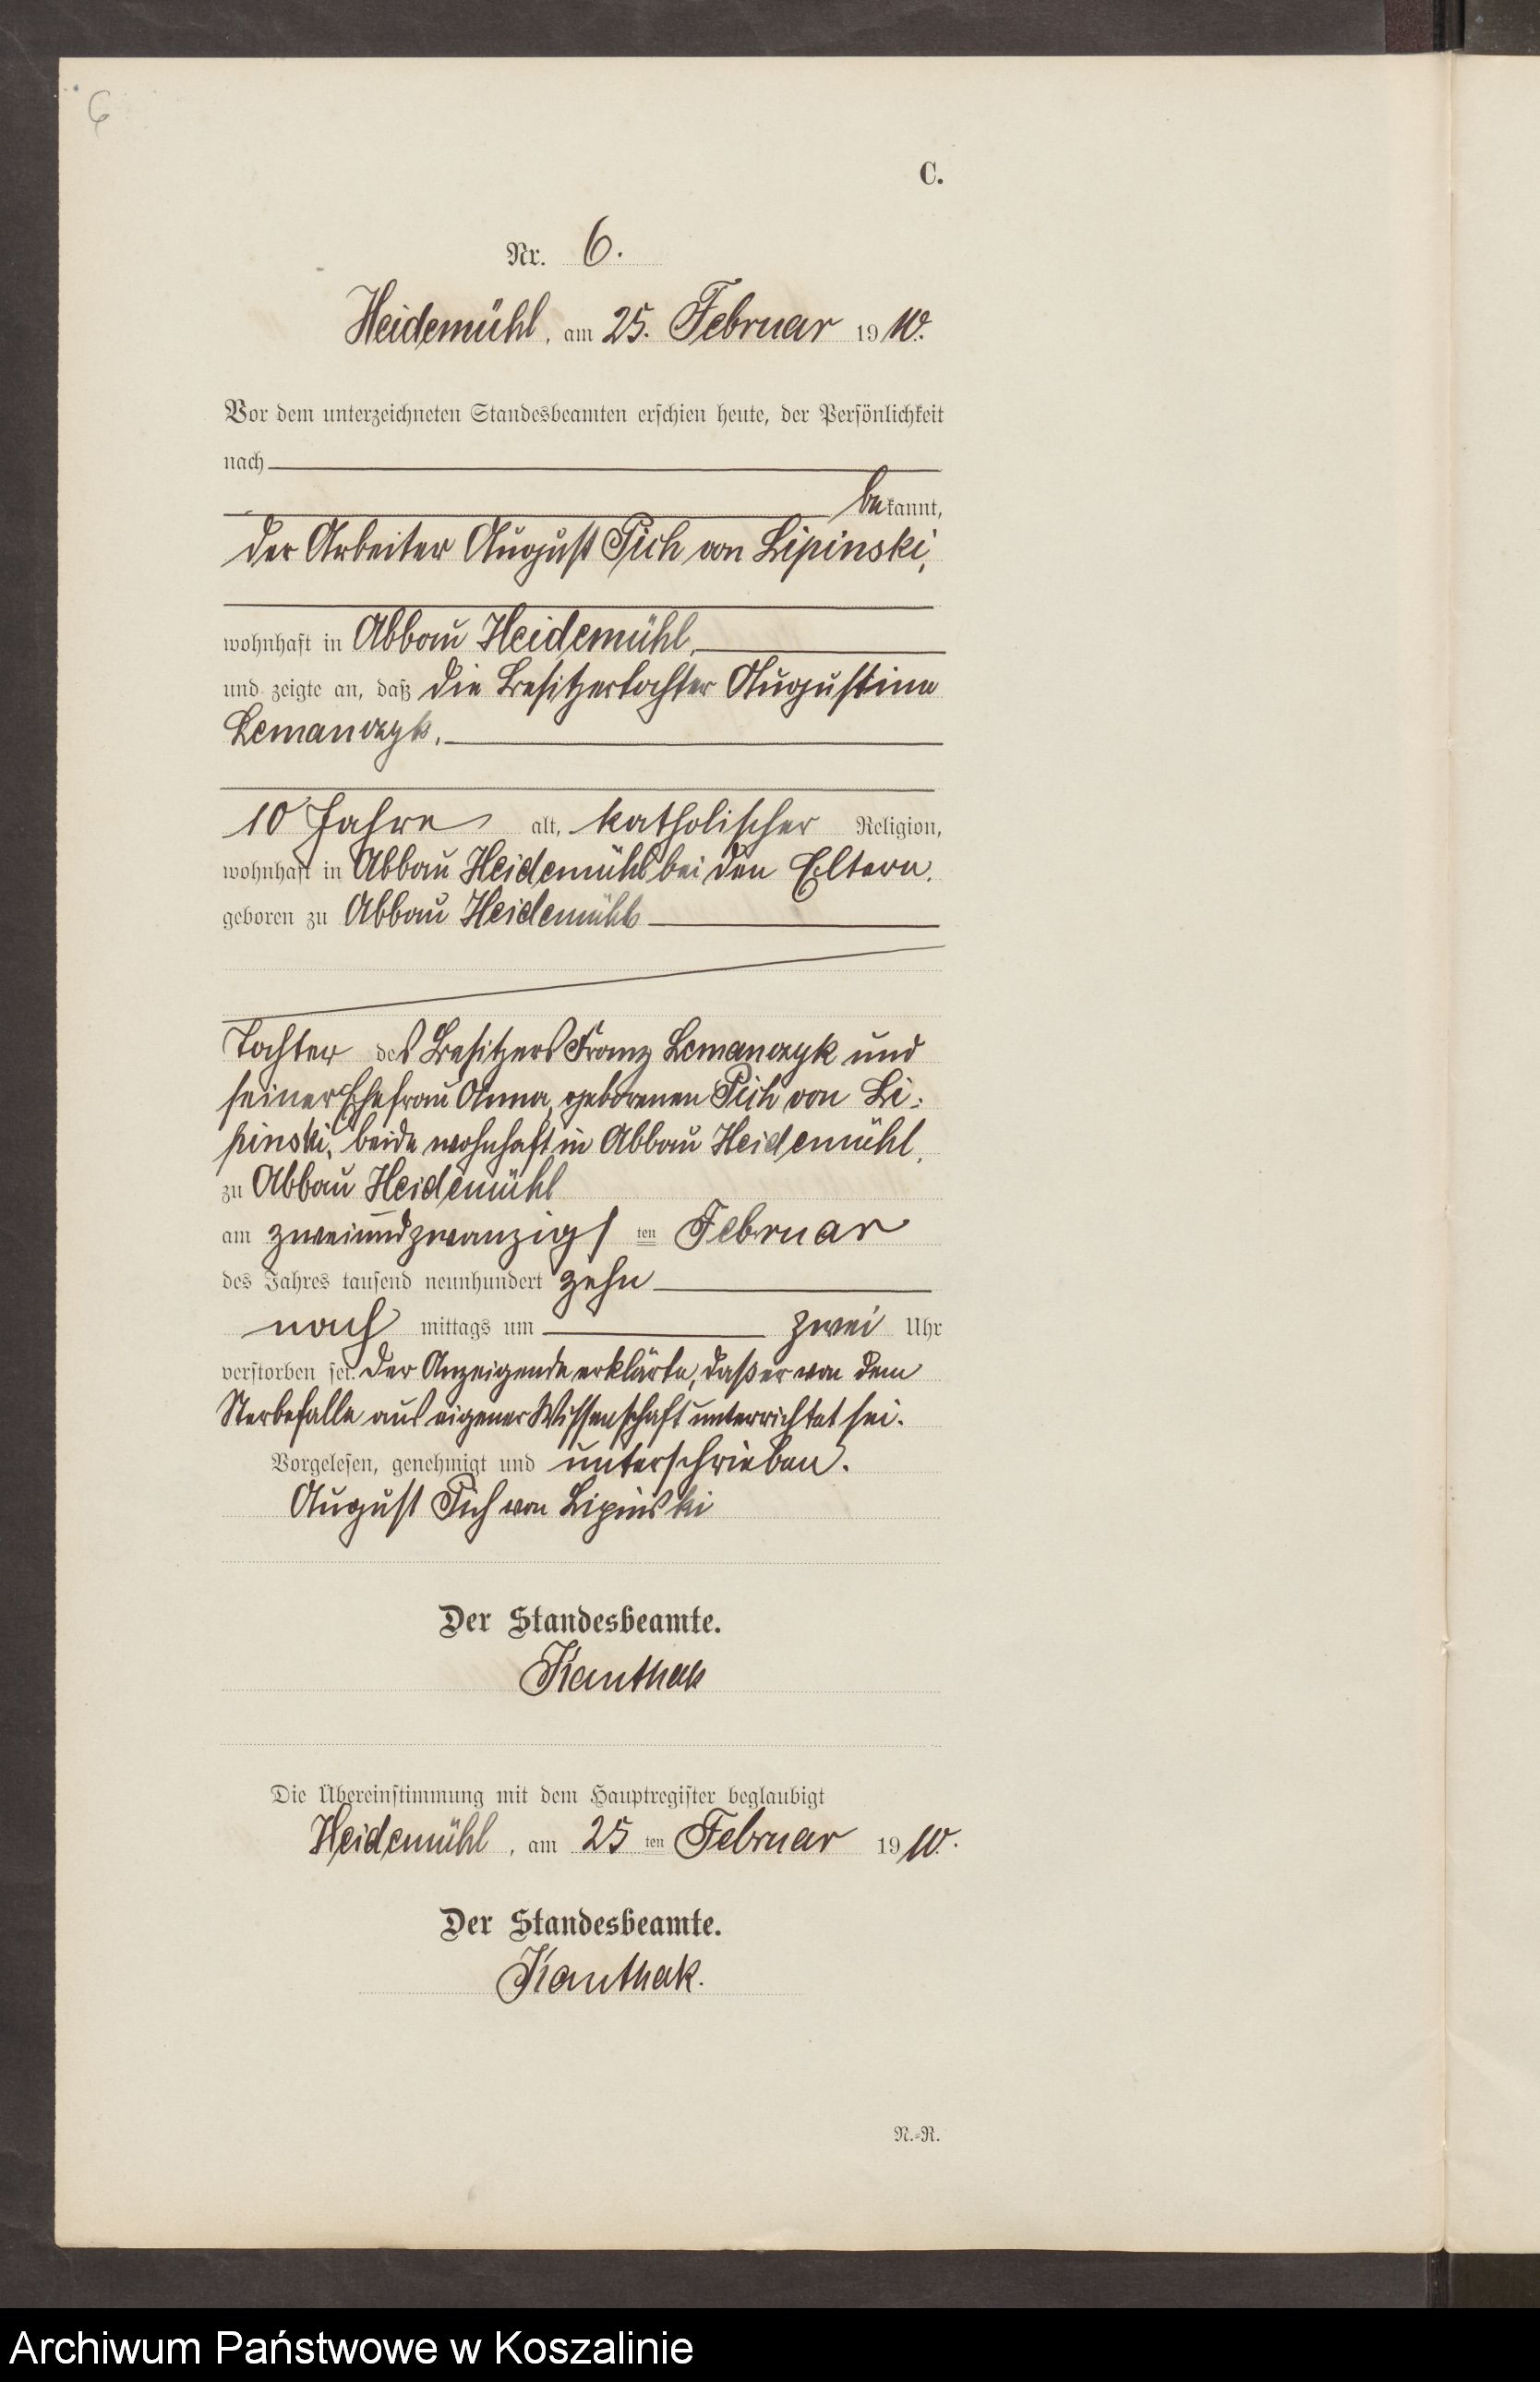 6
C.
Nr. 6.
Heidemühl, am 25. Februar 1910.
Vor dem unterzeichneten Standesbeamten erschien heute, der Persönlichkeit
nach
bekannt,
der Arbeiter August Pich von Lipinski,
wohnhaft in Abbau Heidemühl,
und zeigte an, daß die Besitzertochter Augustine
Lemanczyk,
10 Jahre alt, katholischer Religion,
wohnhaft in Abbau Heidemühl bei den Eltern.
geboren zu Abbau Heidemühl
Tochter des Besitzers Franz Lemanczyk und
seiner Ehefrau Anna, geborenen Pich von Li=
pinski, beide wohnhaft in Abbau Heidemühl,
zu Abbau Heidemühl
am zweiundzwanzigsten Februar
des Jahres tausend neunhundert zehn
nach mittags um zwei Uhr
verstorben sei. Der Anzeigende erklärte, daß er von dem
Sterbefalle aus eigener Wissenschaft unterrichtet sei.
Vorgelesen, genehmigt und unterschrieben.
August Pich von Lipinski
Der Standesbeamte.
Kanthak
Die Übereinstimmung mit dem Hauptregister beglaubigt
Heidemühl, am 25ten Februar 1910.
Der Standesbeamte.
Kanthak.
N.=R.
Archiwum Państwowe w Koszalinie